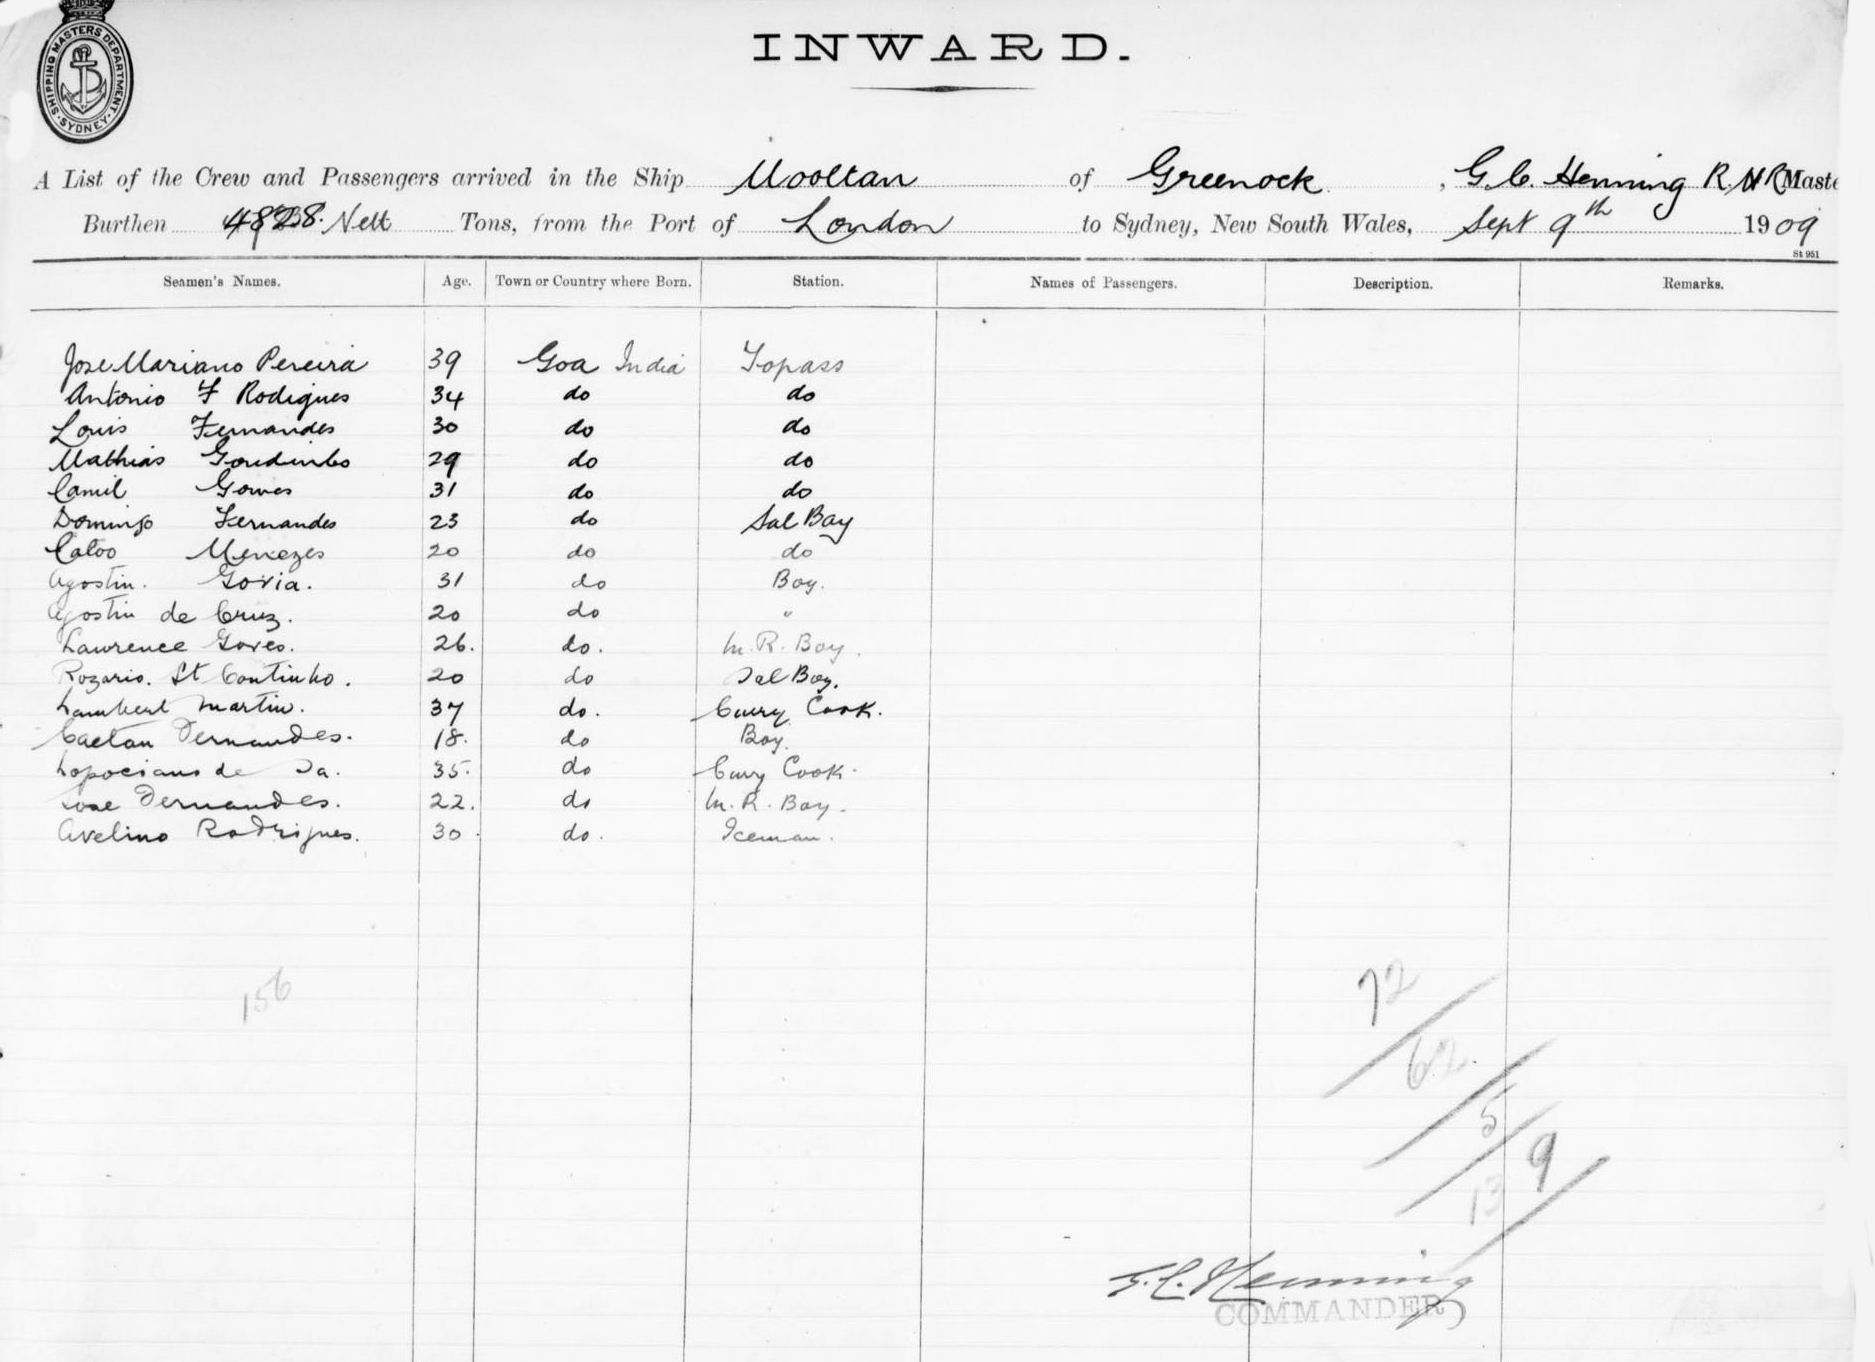 SHIPPING MASTERS DEPARTMENT
SYDNEY
INWARD.
A List of the Crew and Passengers arrived in the Ship Mooltan of Greenock, G. C. Henning R.N.R Maste
Burthen Nett Tons, from the Port of London to Sydney, New South Wales, Sept 9th 1909
St 951
Seamen's Names. Age. Town or Country where Born. Station. Names of Passengers. Description. Remarks.
Jose Mariano Pereira 39 Goa India Topass
Antonio F Rodigues 34 do do
Louis Fernandes 30 do do
Mathias Goudinho 29 do do
Camil Gomes 31 do do
Domingo Fernandes 23 do Sal Boy
Menezes 20 do do
Agostin. 31 do Boy.
Agostin de Cruz. 20 do "
Lawrence 26. do. M. R. Boy.
Rozario. St Coutinho. 20 do Sal Boy.
Lambert Martin. 37 do. Curry Cook.
Caetan Fernandes. 18. do Boy.
de Sa. 35. do Curry Cook.
Jose Fernandes. 22. do M. R. Boy.
Avelino Rodrigues. 30. do. Iceman.
156
72
62
5
9
13
G. C. Henning
COMMANDER